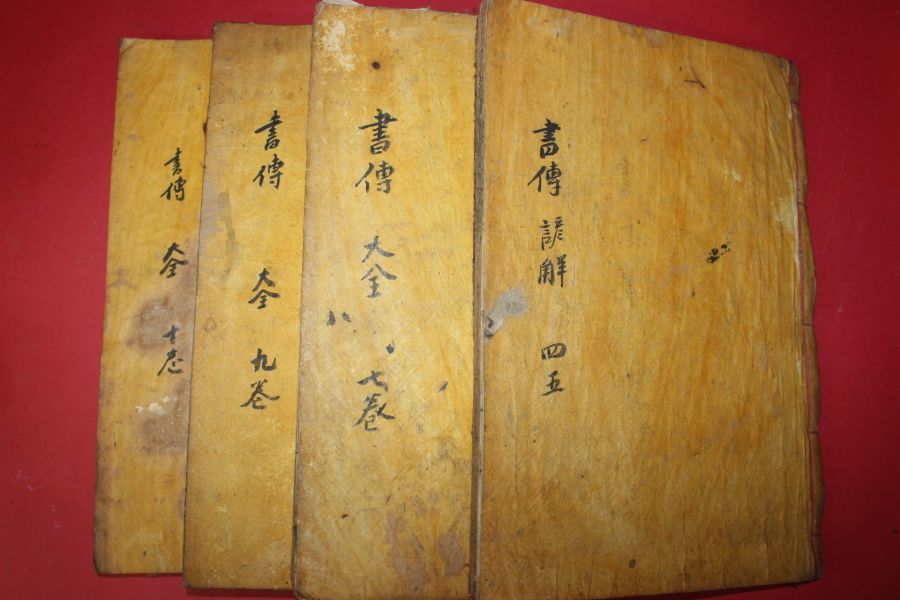 書傳 諺解 四五
書傳 大全 七卷
八
書傳 大全 九卷
書傳 大全 十卷